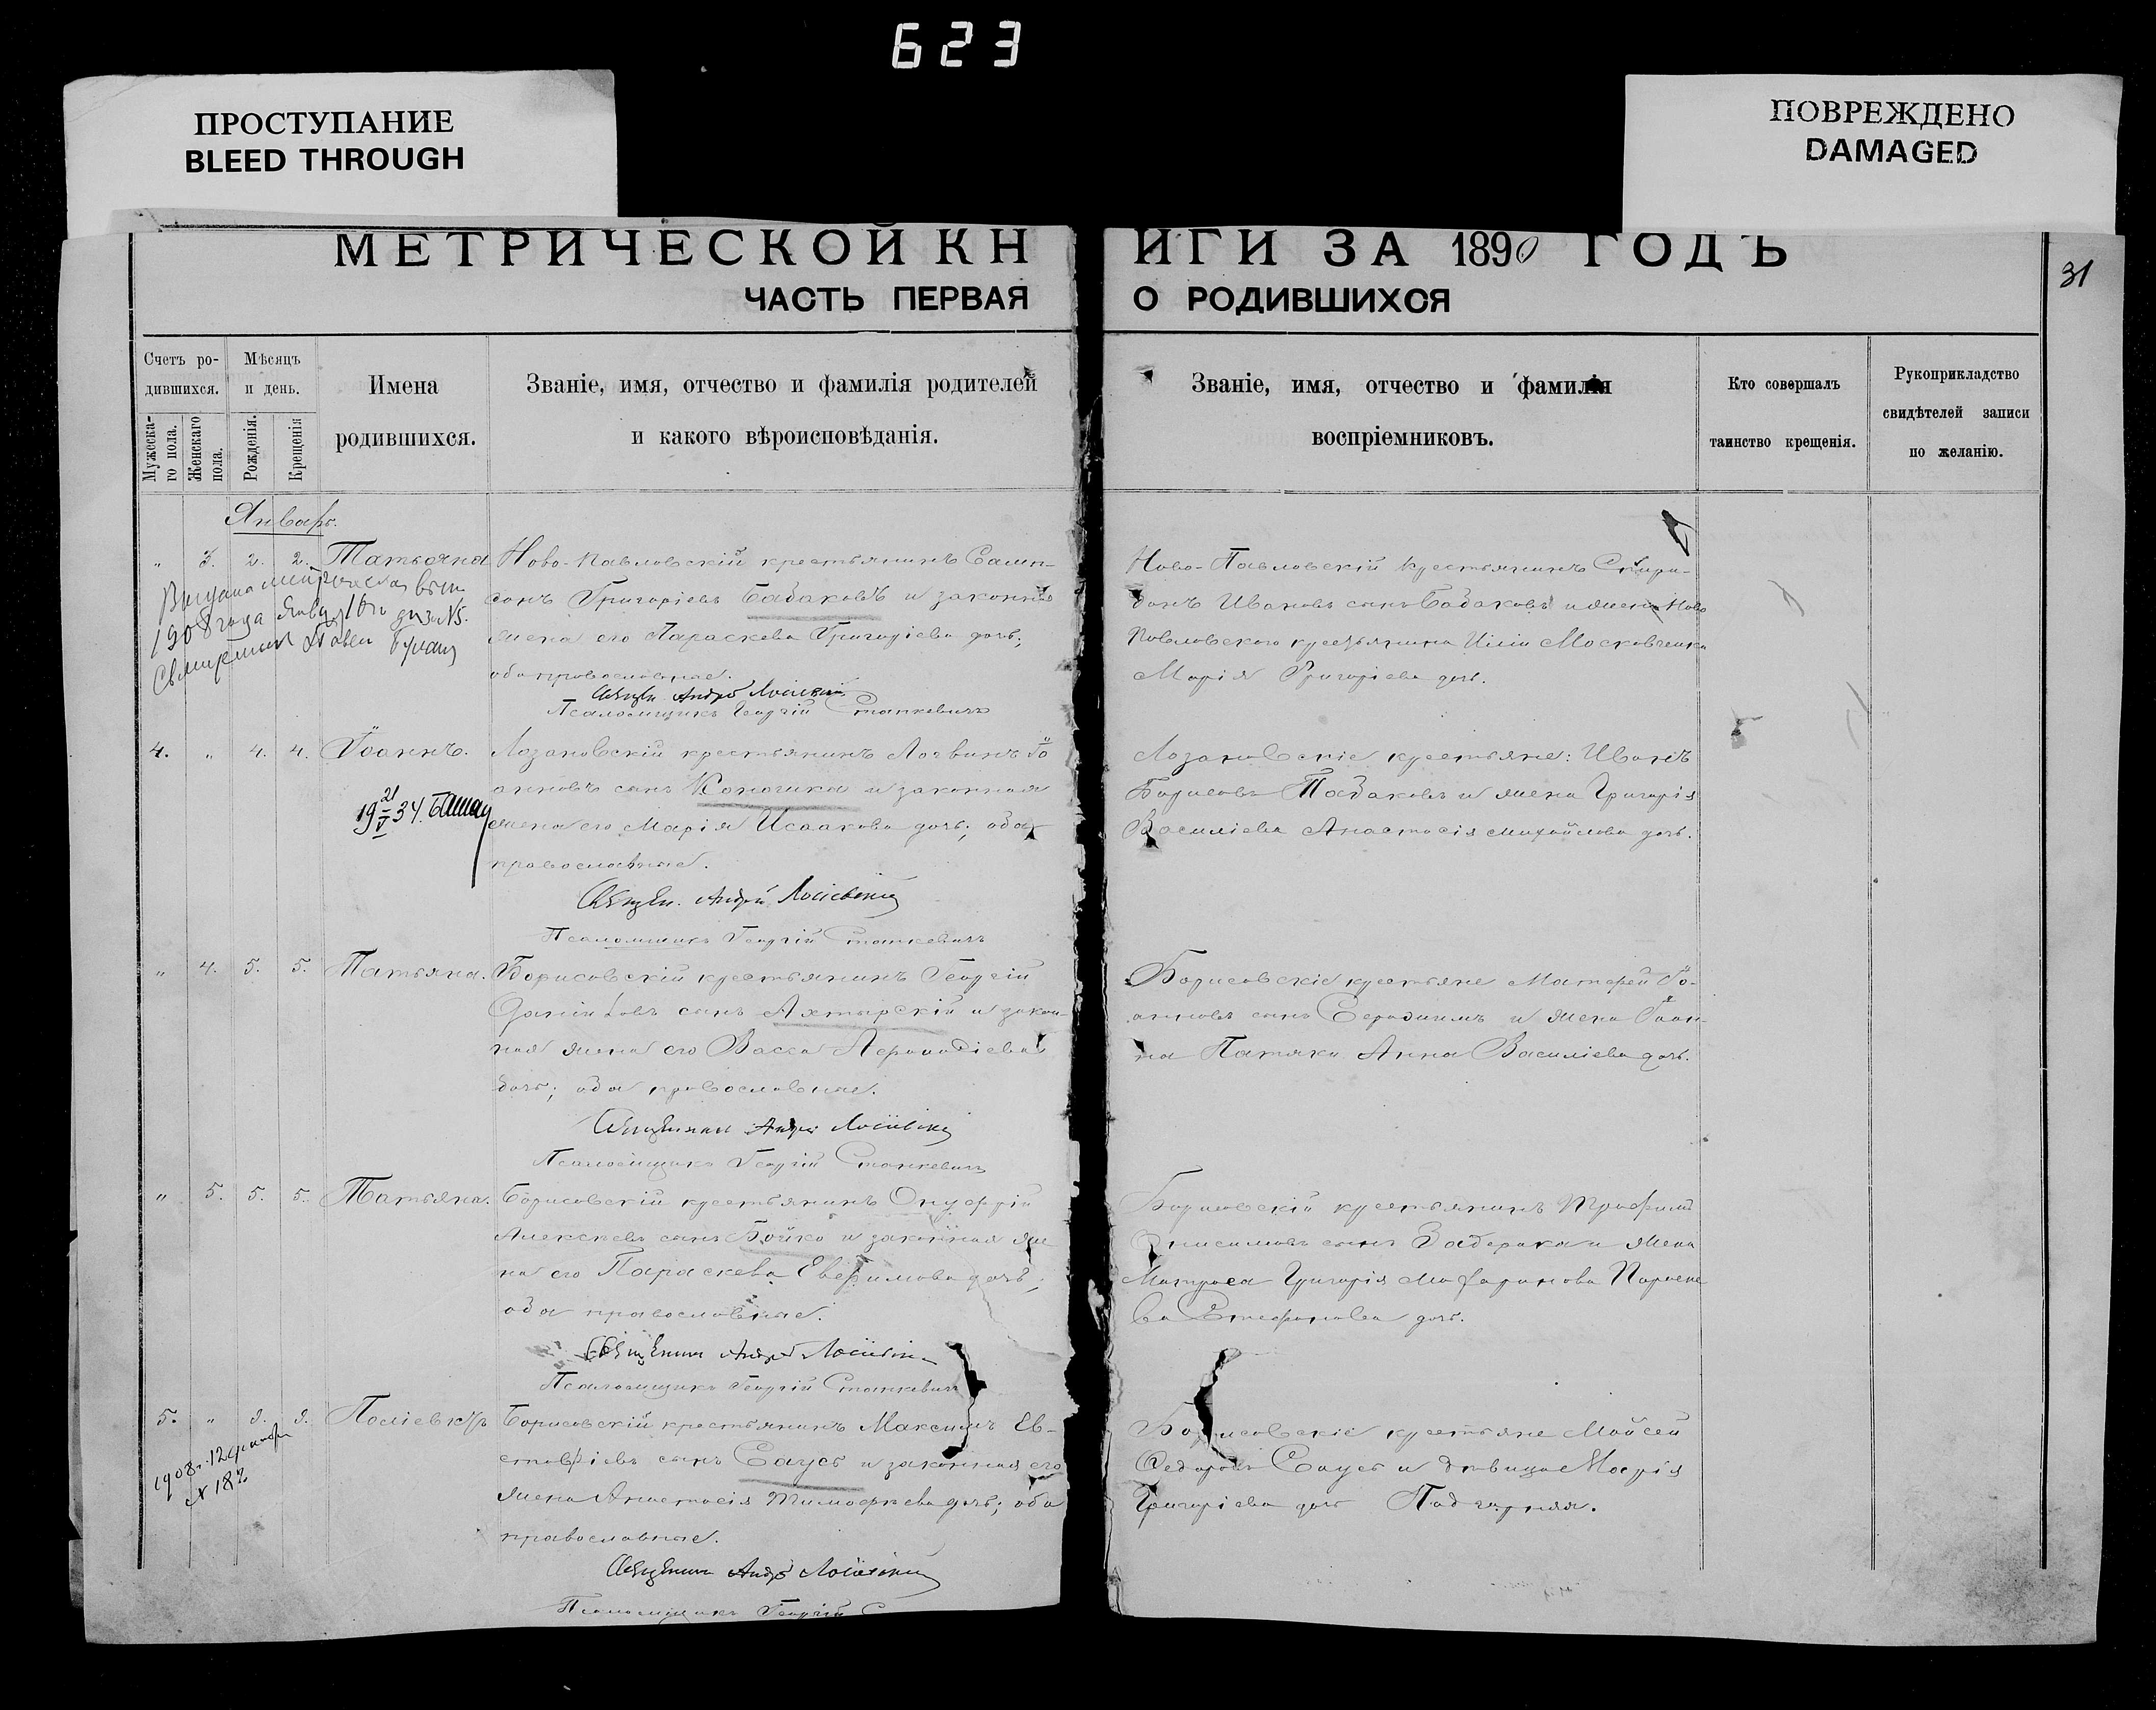 623
ПРОСТУПАНИЕ
BLEED THROUGH
ПОВРЕЖДЕНО
DAMAGED
МЕТРИЧЕСКОЙ КНИГИ ЗА 1890 ГОДЪ
ЧАСТЬ ПЕРВАЯ О РОДИВШИХСЯ
31
Счетъ ро-
дившихся.
Мужеска-
го пола.
Женскаго
пола.
Мѣсяцъ
и день.
Рожденія.
Крещенія
Имена
родившихся.
Званіе, имя, отчество и фамилія родителей
и какого вѣроисповѣданія.
Званіе, имя, отчество и фамилія
воспріемниковъ.
Кто совершалъ
таинство крещенія.
Рукоприкладство
свидѣтелей записи
по желанію.
Январь.
" 3. 2. 2. Татьяна
Ново-Павловскій крестьянинъ Самп-
сонъ Григоріевъ Бабаковъ и законная
жена его Параскева Григоріева дочь;
оба православные.
Священ Андрей
Псаломщикъ Георгій Станкевичъ
Ново-Павловскій крестьянинъ Спири-
донъ Ивановъ сынъ Бабаковъ и жена Ново
Павловскаго крестьянина Иліи Московченка
Марія Григоріева дочь.
Выдана метрическая
1908 года Янв
Священник Павел
4. " 4. 4. Іоаннъ.
Лозановскій крестьянинъ Логвинъ Іо
анновъ сынъ Кононика и законная
жена его Марія Исаакова дочь; оба
православные.
Священ. Андрей
Псаломщикъ Георгій Станкевичъ
Лозановскіе крестьяне: Иванъ
Борисовъ Табаковъ и жена Григорія
Василіева Анастасія Михайлова дочь.
21
19 V 34.
" 4. 5. 5. Татьяна.
Борисовскій крестьянинъ Георгій
Даніиловъ сынъ Ахтырскій и закон-
ная жена его Васса
дочь; оба православные.
Священник Андрей
Псаломщикъ Георгій Станкевичъ
Борисовскіе крестьяне Матфей Іо-
анновъ сынъ и жена Іоан-
на Анна Василіева дочь.
" 5. 5. 5. Татьяна.
Борисовскій крестьянинъ Онуфрій
Алексѣевъ сынъ Бойко и законная же
на его Параскева Евфимова дочь;
оба православные.
Священник Андрей
Псаломщикъ Георгій Станкевичъ
Борисовскій крестьянинъ Трофимъ
Онисимовъ сынъ Задерака и жена
Матроса Григорія Параске
ва Стефанова дочь.
5. " 8. 8. Поліевктъ
Борисовскій крестьянинъ Максимъ Ев-
стафіевъ сынъ Саусь и законная его
жена Анастасія Тимофѣева дочь; оба
православные.
Священник Андрей
Псаломщикъ Георгій С
Борисовскіе крестьяне Мойсей
Ѳедоровъ Саусь и дѣвица Марія
Григоріева дочь Подгурная.
1908 г. 12
№ 182